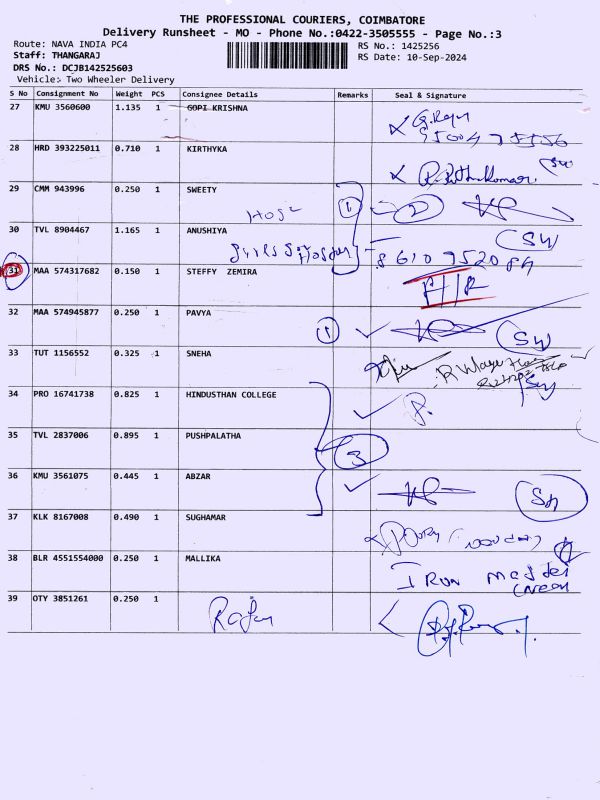 THE PROFESSIONAL COURIERS, COIMBATORE
Delivery Runsheet - MO - Phone No.:0422-3505555 - Page No.:3
Route: NAVA INDIA PC4
Staff: THANGARAJ
DRS No.: DCJB142525603
Vehicle:- Two Wheeler Delivery
RS No.: 1425256
RS Date: 10-Sep-2024
S No Consignment No Weight PCS Consignee Details Remarks Seal & Signature
27 KMU 3560600 1.135 1 GOPI KRISHNA
28 HRD 393225011 0.710 1 KIRTHYKA
29 CMM 943996 0.250 1 SWEETY
1 2
30 TVL 8904467 1.165 1 ANUSHIYA
SW
31 MAA 574317682 0.150 1 STEFFY ZEMIRA
32 MAA 574945877 0.250 1 PAVYA
1 SW
33 TUT 1156552 0.325 1 SNEHA
34 PRO 16741738 0.825 1 HINDUSTHAN COLLEGE
35 TVL 2837006 0.895 1 PUSHPALATHA
3
36 KMU 3561075 0.445 1 ABZAR
37 KLK 8167008 0.490 1 SUGHAMAR
38 BLR 4551554000 0.250 1 MALLIKA
39 OTY 3851261 0.250 1